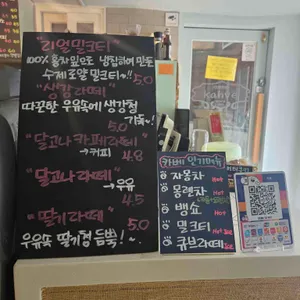 "리얼밀크티"
100% 홍차잎으로 냉침하여 만든
수제로얄 밀크티~!! 5.0
"생강라떼"
따끈한 우유속에 생강청
가득~!
5.0
"달고나 카페라떼"
→커피 4.8
"달고나라떼"
→우유
4.5
"딸기라떼" 5.0
우유또 딸기청 듬뿍!~.
카베 인기메뉴
자몽차 Hot
몽렌차 Hot
뱅쇼 Hot
밀크티 Hot Ice
큐브라떼 Ice